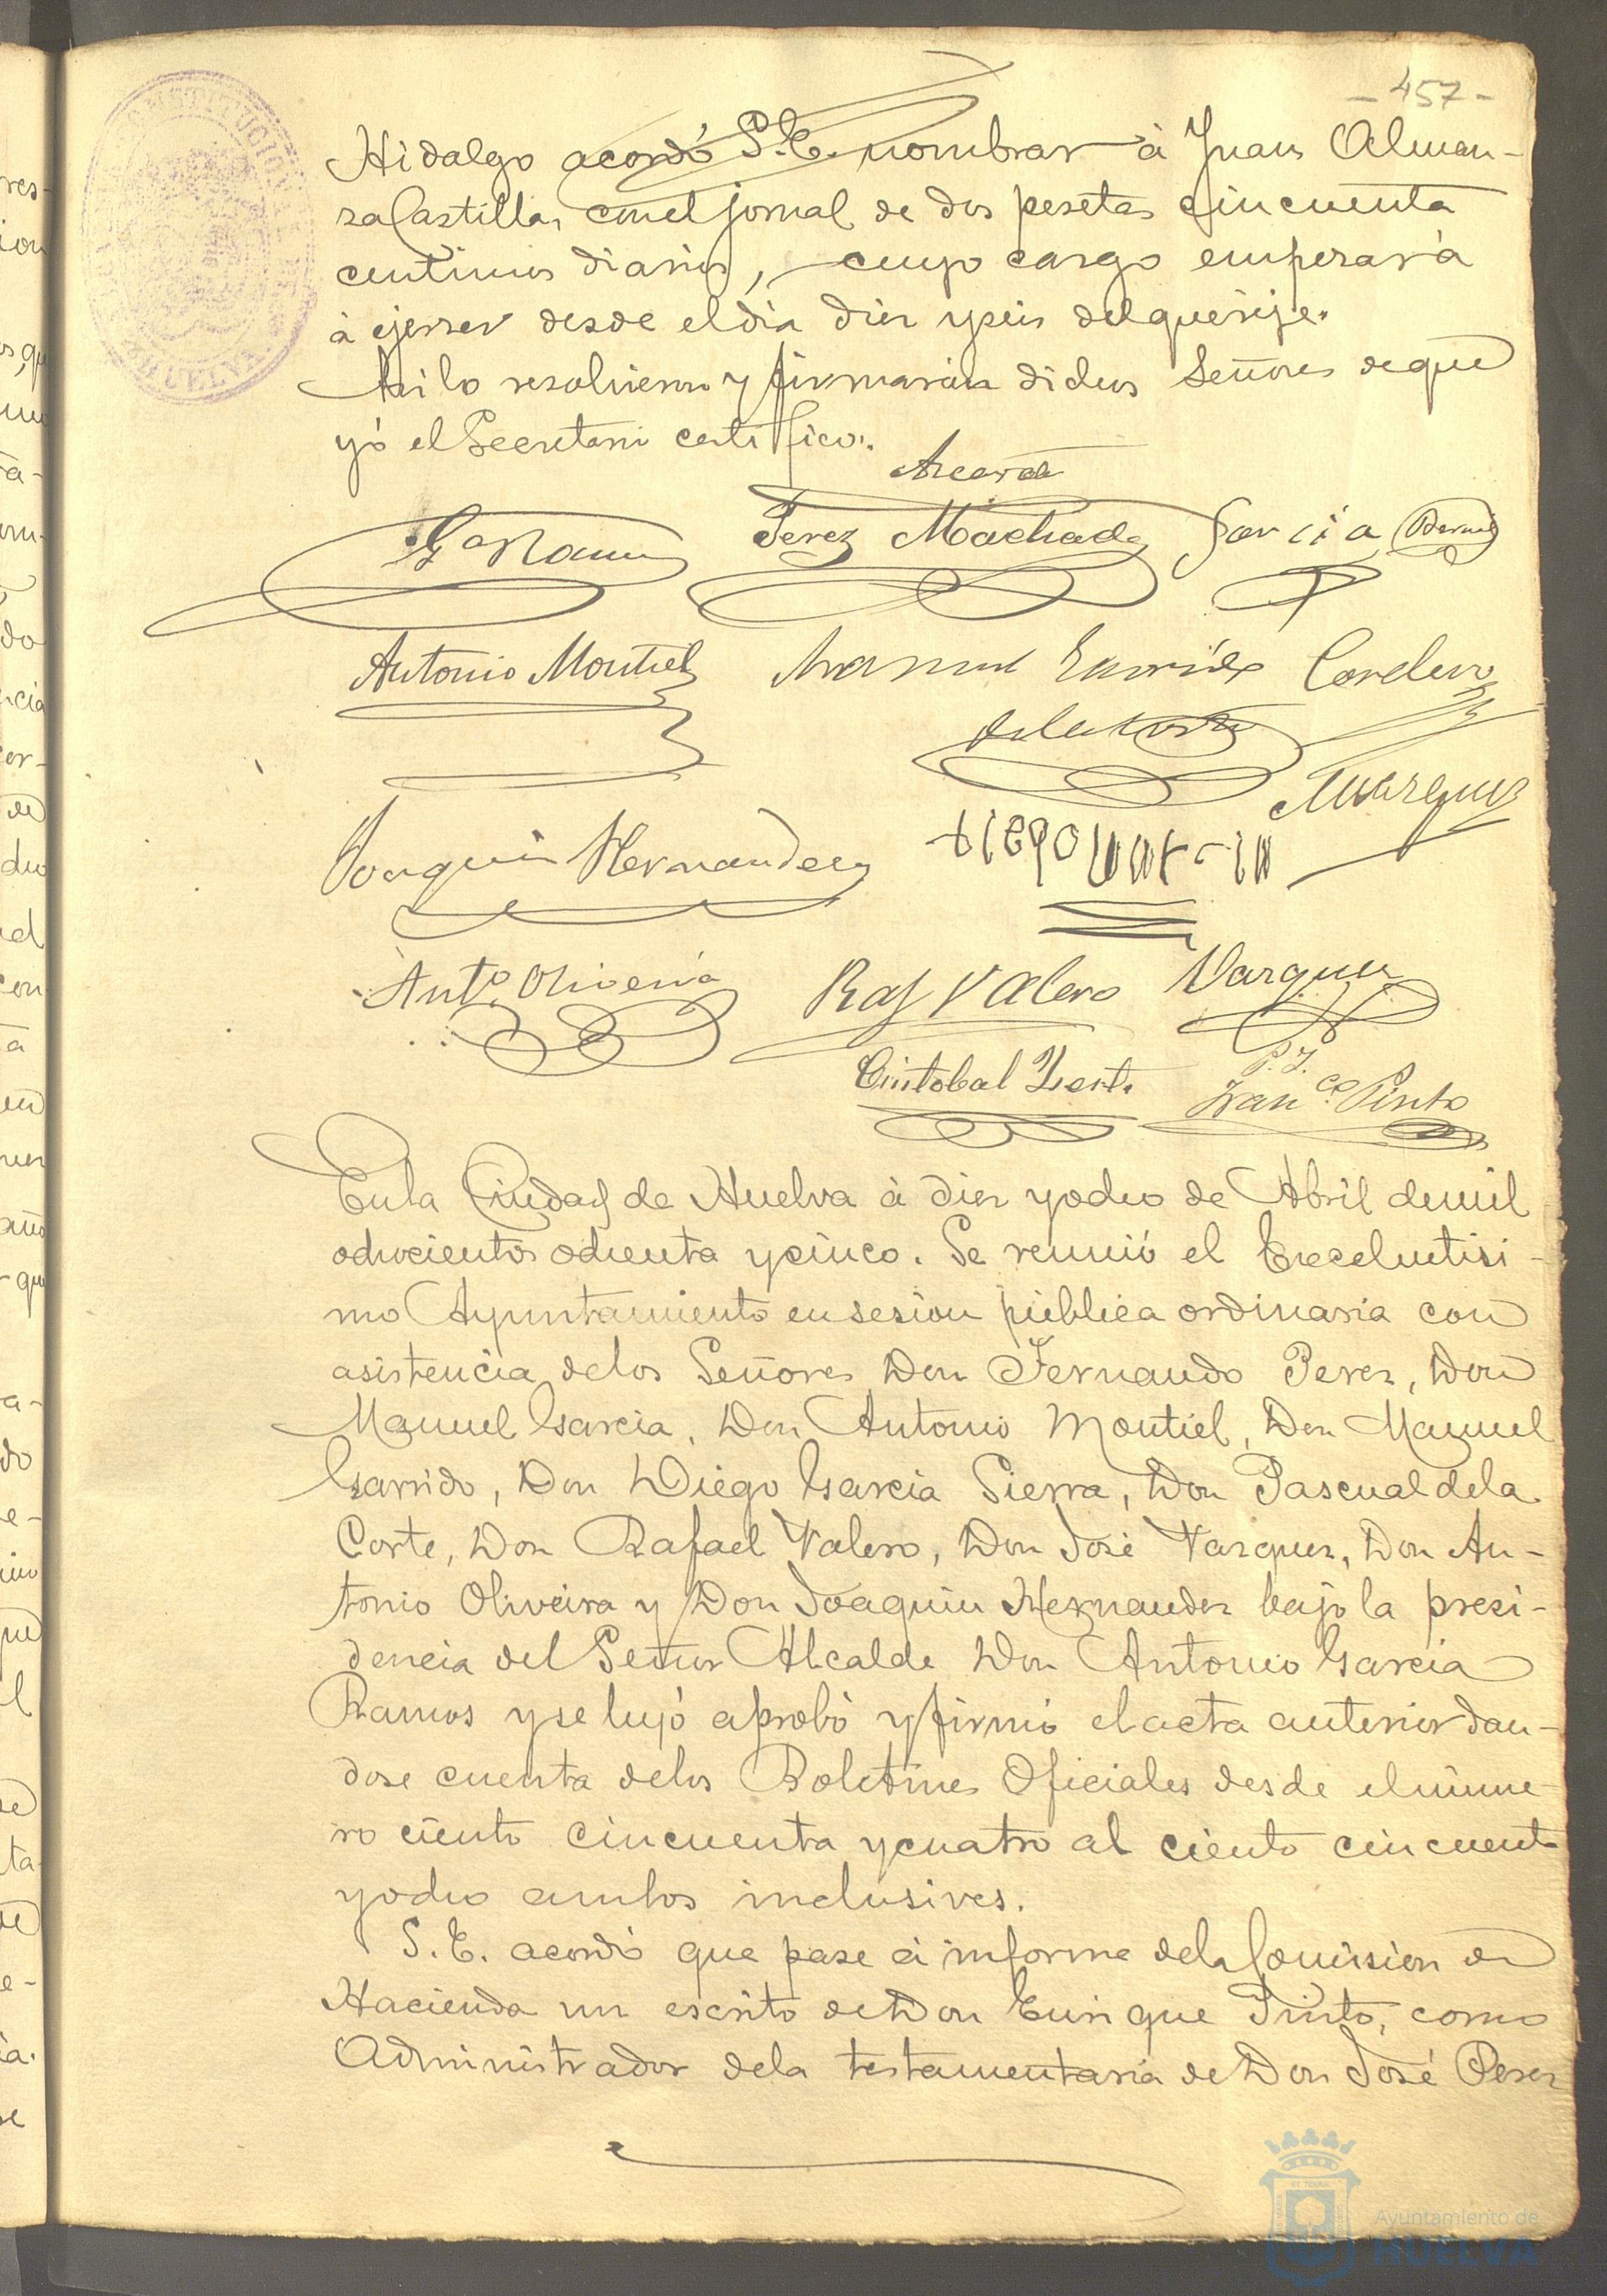 - 457 -
Hidalgo acordó S.E. nombrar à Juan Alman-
za Castilla, con el jornal de dos pesetas cincuenta
centimos diarios, cuyo cargo empezará
à ejerser desde el dia diez y seis del que rije.
Asi lo resolvieron y firmarán dichos Señores de que
yó el Secretario certifico.
Gª Ramos
Perez Machado
Garcia
Antonio Montiel
Manuel
Cordero
de la Corte
Marquez
Joaquin Hernandez
Antº Oliveira
Raf Valero
Vazquez
Cristobal
P.I.
Franco Pinto
En la Ciudad de Huelva à diez y ocho de Abril de mil
ochocientos ochenta y cinco. Se reunió el Excelentisi-
mo Ayuntamiento en sesion pública ordinaria con
asistencia de los Señores Don Fernando Perez, Don
Manuel Garcia, Don Antonio Montiel, Don Manuel
Garrido, Don Diego Garcia Sierra, Don Pascual de la
Corte, Don Rafael Valero, Don José Vazquez, Don An-
tonio Oliveira y Don Joaquin Hernandez bajo la presi-
dencia del Señor Alcalde Don Antonio Garcia
Ramos y se leyó aprobó y firmó el acta anterior dan-
dose cuenta de los Boletines Oficiales desde el núme-
ro ciento cincuenta y cuatro al ciento cincuenta
y ocho ambos inclusives.
S.E. acordó que pase á informe de la Comision de
Hacienda un escrito de Don Enrique Pinto, como
Administrador de la testamentaria de Don José Perez
Ayuntamiento de
HUELVA